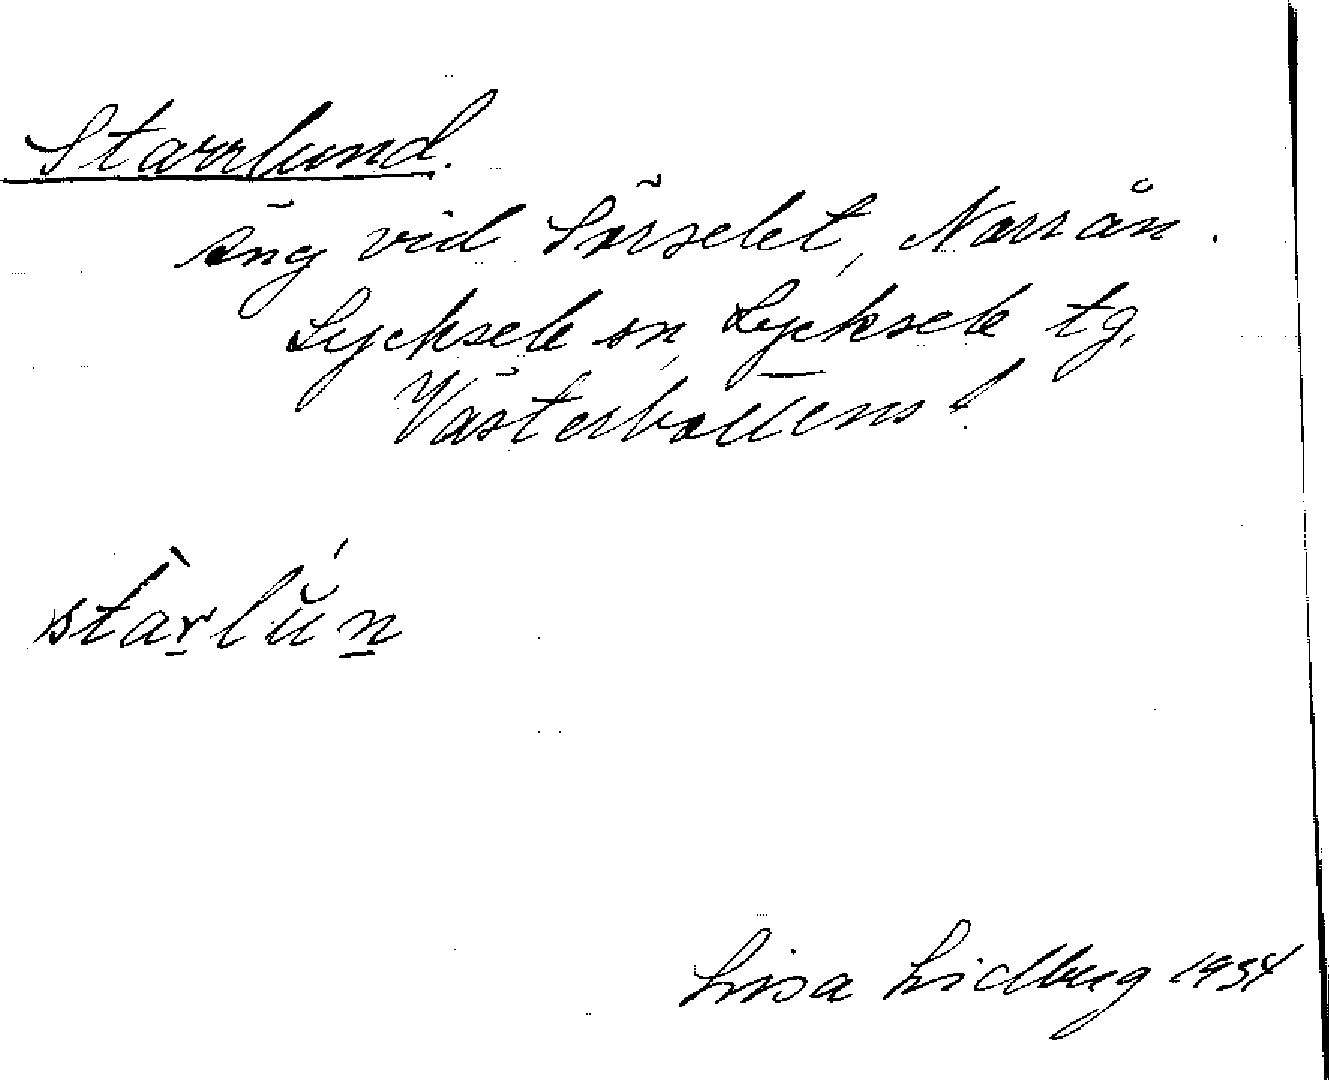 Starrlund.
äng vid Sörselet, Norrån.
Lycksele sn, Lycksele tg.
Västerbottens l.
starlŭn
Lisa Lidberg 1934